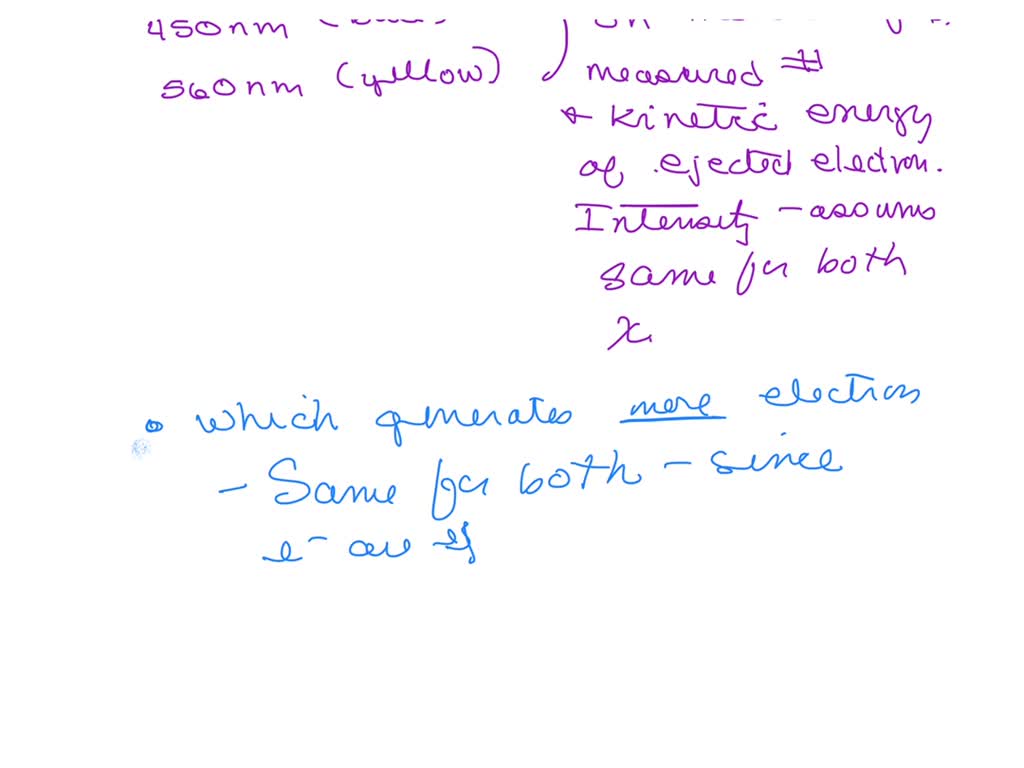 450nm
560nm (yellow) measured #
+ kinetic energy
of ejected electron.
Intensity - assums
same for both
x
• which generates more electrons
- Same for both - since
e⁻ are